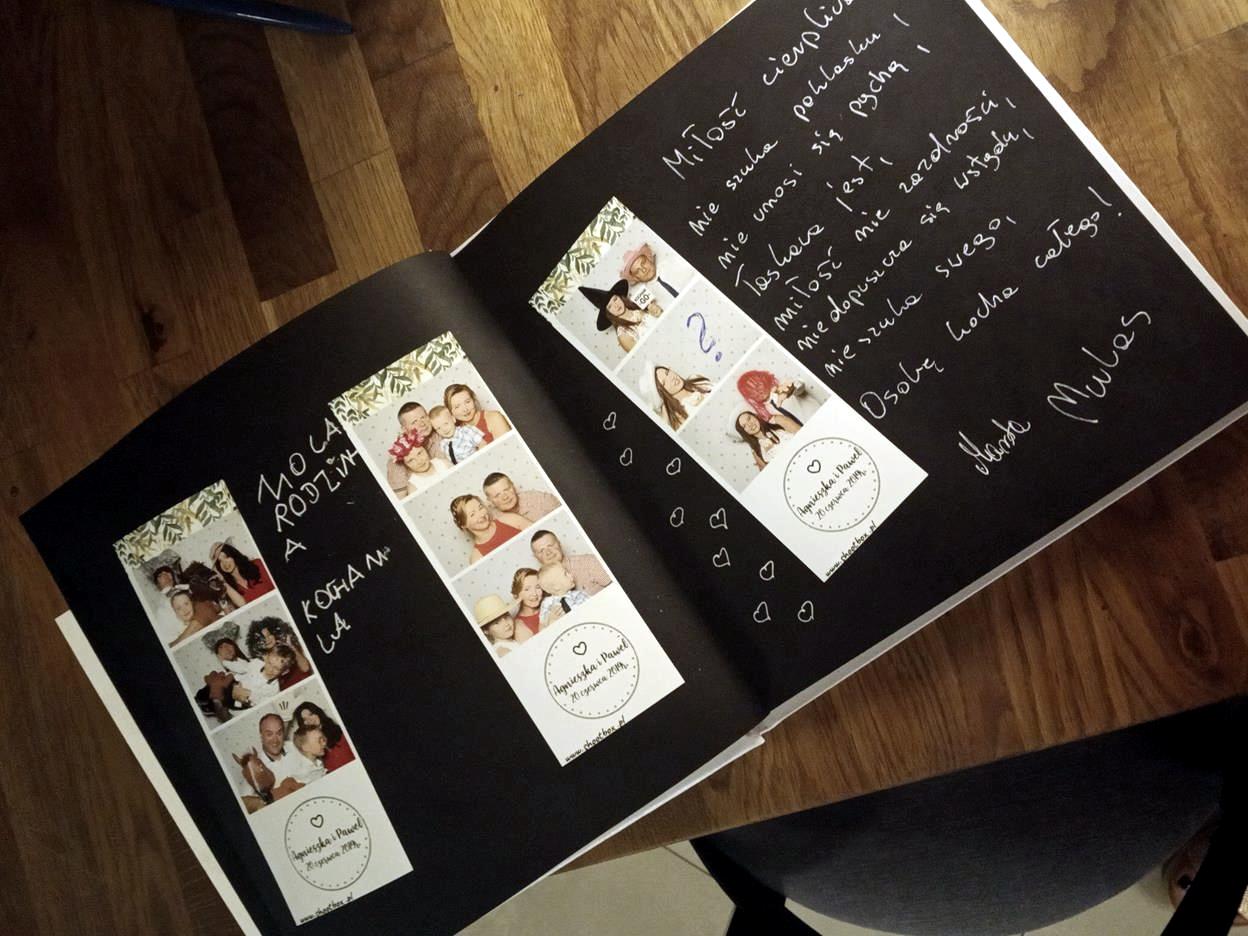 RODZIN
A
KOCHAM
Agnieszka i Paweł
20 czerwca 2019r.
www.shootbox.pl
Agnieszka i Paweł
20 czerwca 2019r.
www.shootbox.pl
?
Agnieszka i Paweł
20 czerwca 2019r.
www.shootbox.pl
Miłość cierpliwa
nie szuka poklasku,
nie unosi się pychą,
Łaskawa jest,
miłość nie zazdrości,
nie dopuszcza się wstydu,
nie szuka swego,
Osobę kocha całego!